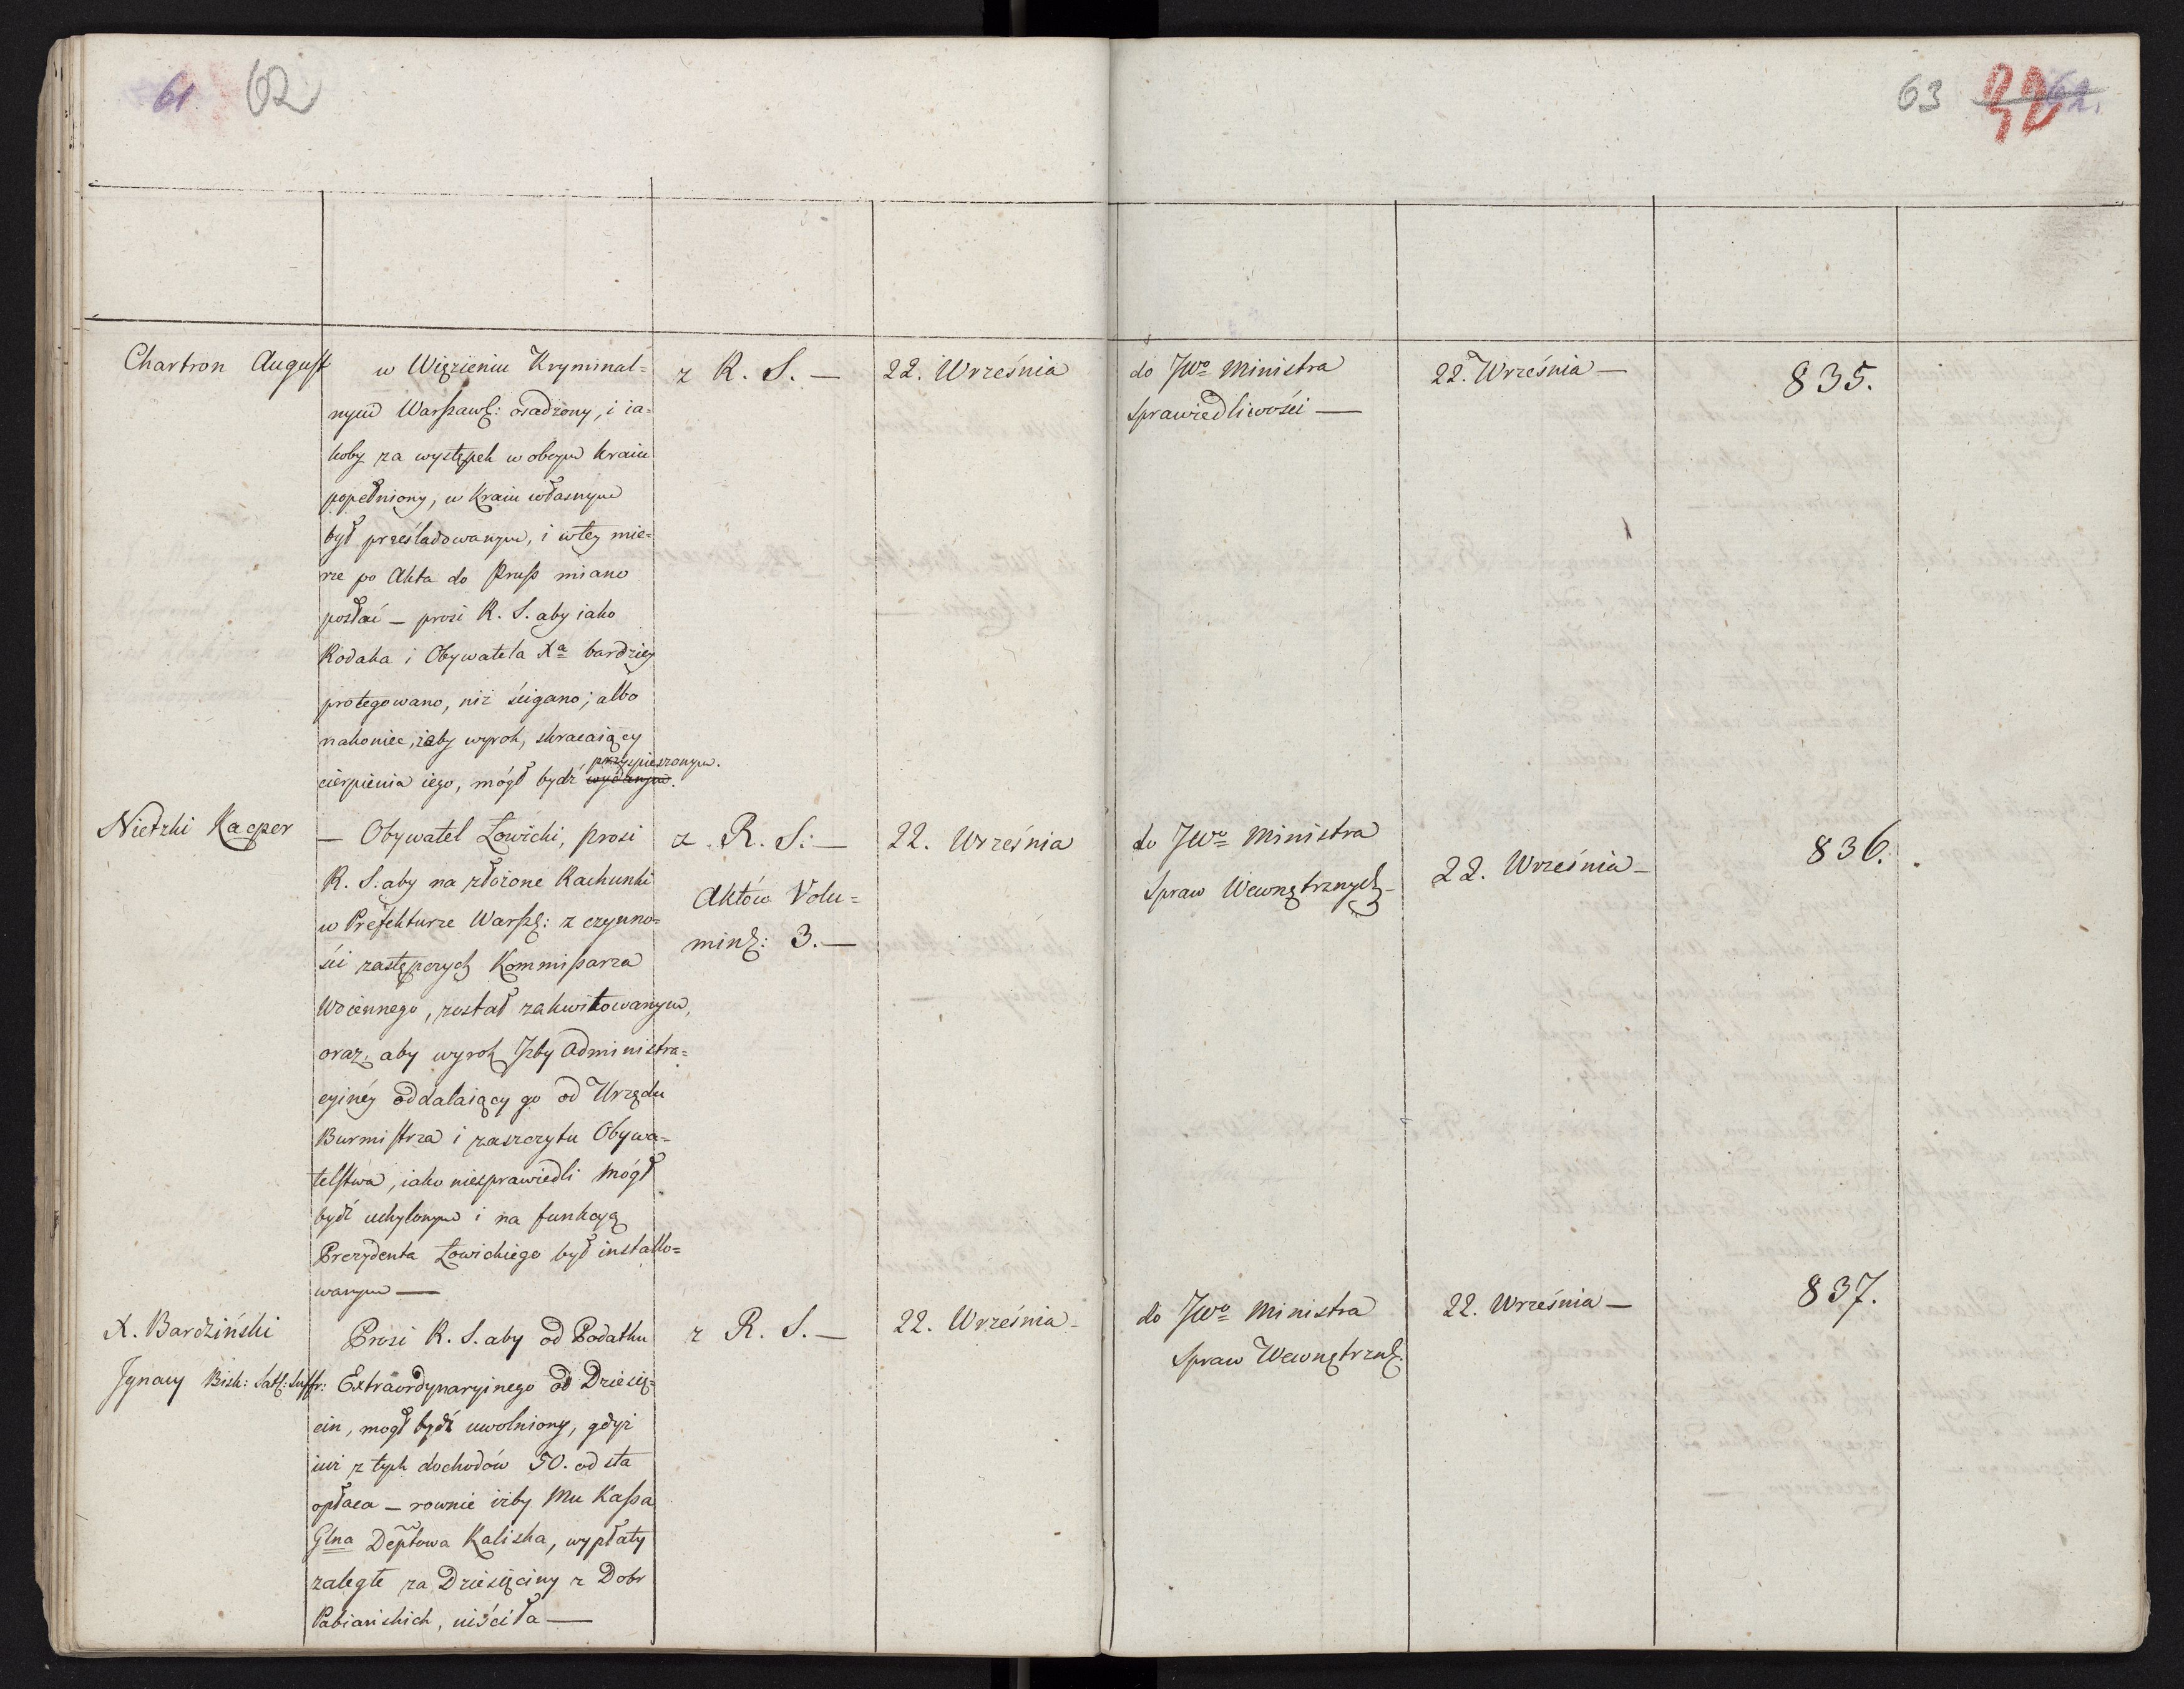 61. 62
63 32 62.
Chartron August
w Więzieniu Kryminal=
nym Warszaws: osadzony, i ia=
koby za występek w obcym kraiu
popełniony, w Kraiu własnym
był prześladowanym, i w tey mie=
rze po Akta do Pruss miano
posłać — prosi R. S. aby iako
Rodaka i Obywatela Xa bardziey
protegowano, niż ścigano; albo
nakoniec, iżby wyrok, skracaiący
przyspieszonym.
cierpienia iego, mógł bydź wydanym.
z R. S. —
22. Września
do JWo Ministra
Sprawiedliwości —
22. Września —
835.
Nietzki Kacper
— Obywatel Łowicki, prosi
R. S. aby na złożone Rachunki
w Prefekturze Warsz: z czynno=
ści zastępczych Kommissarza
Woiennego, został zakwitowanym,
oraz, aby wyrok Izby Administra=
cyiney oddalaiący go od Urzędu
Burmistrza i zaszczytu Obywa=
telstwa, iako niesprawiedli mógł
bydź uchylonym i na funkcyą
Prezydenta Łowickiego był installo=
wanym —
z R. S: —
Aktów Volu=
min: 3. —
22. Września
do JWo Ministra
Spraw Wewnętrznych —
22. Września —
836.
X. Bardziński
Ignacy Bisk: Suffr:
Prosi R. S. aby od Podatku
Extraordynaryinego od Dziesię=
cin, mogł bydź uwolniony, gdyż
iuż z tych dochodów 50. od sta
opłaca — rownie iżby Mu Kassa
Glna Deptowa Kaliska, wypłaty
zaległe za Dziesięciny z Dobr
Pabianskich, uiściła —
z R. S. —
22. Września —
do JWo Ministra
Spraw Wewnętrzn:
22. Września —
837.